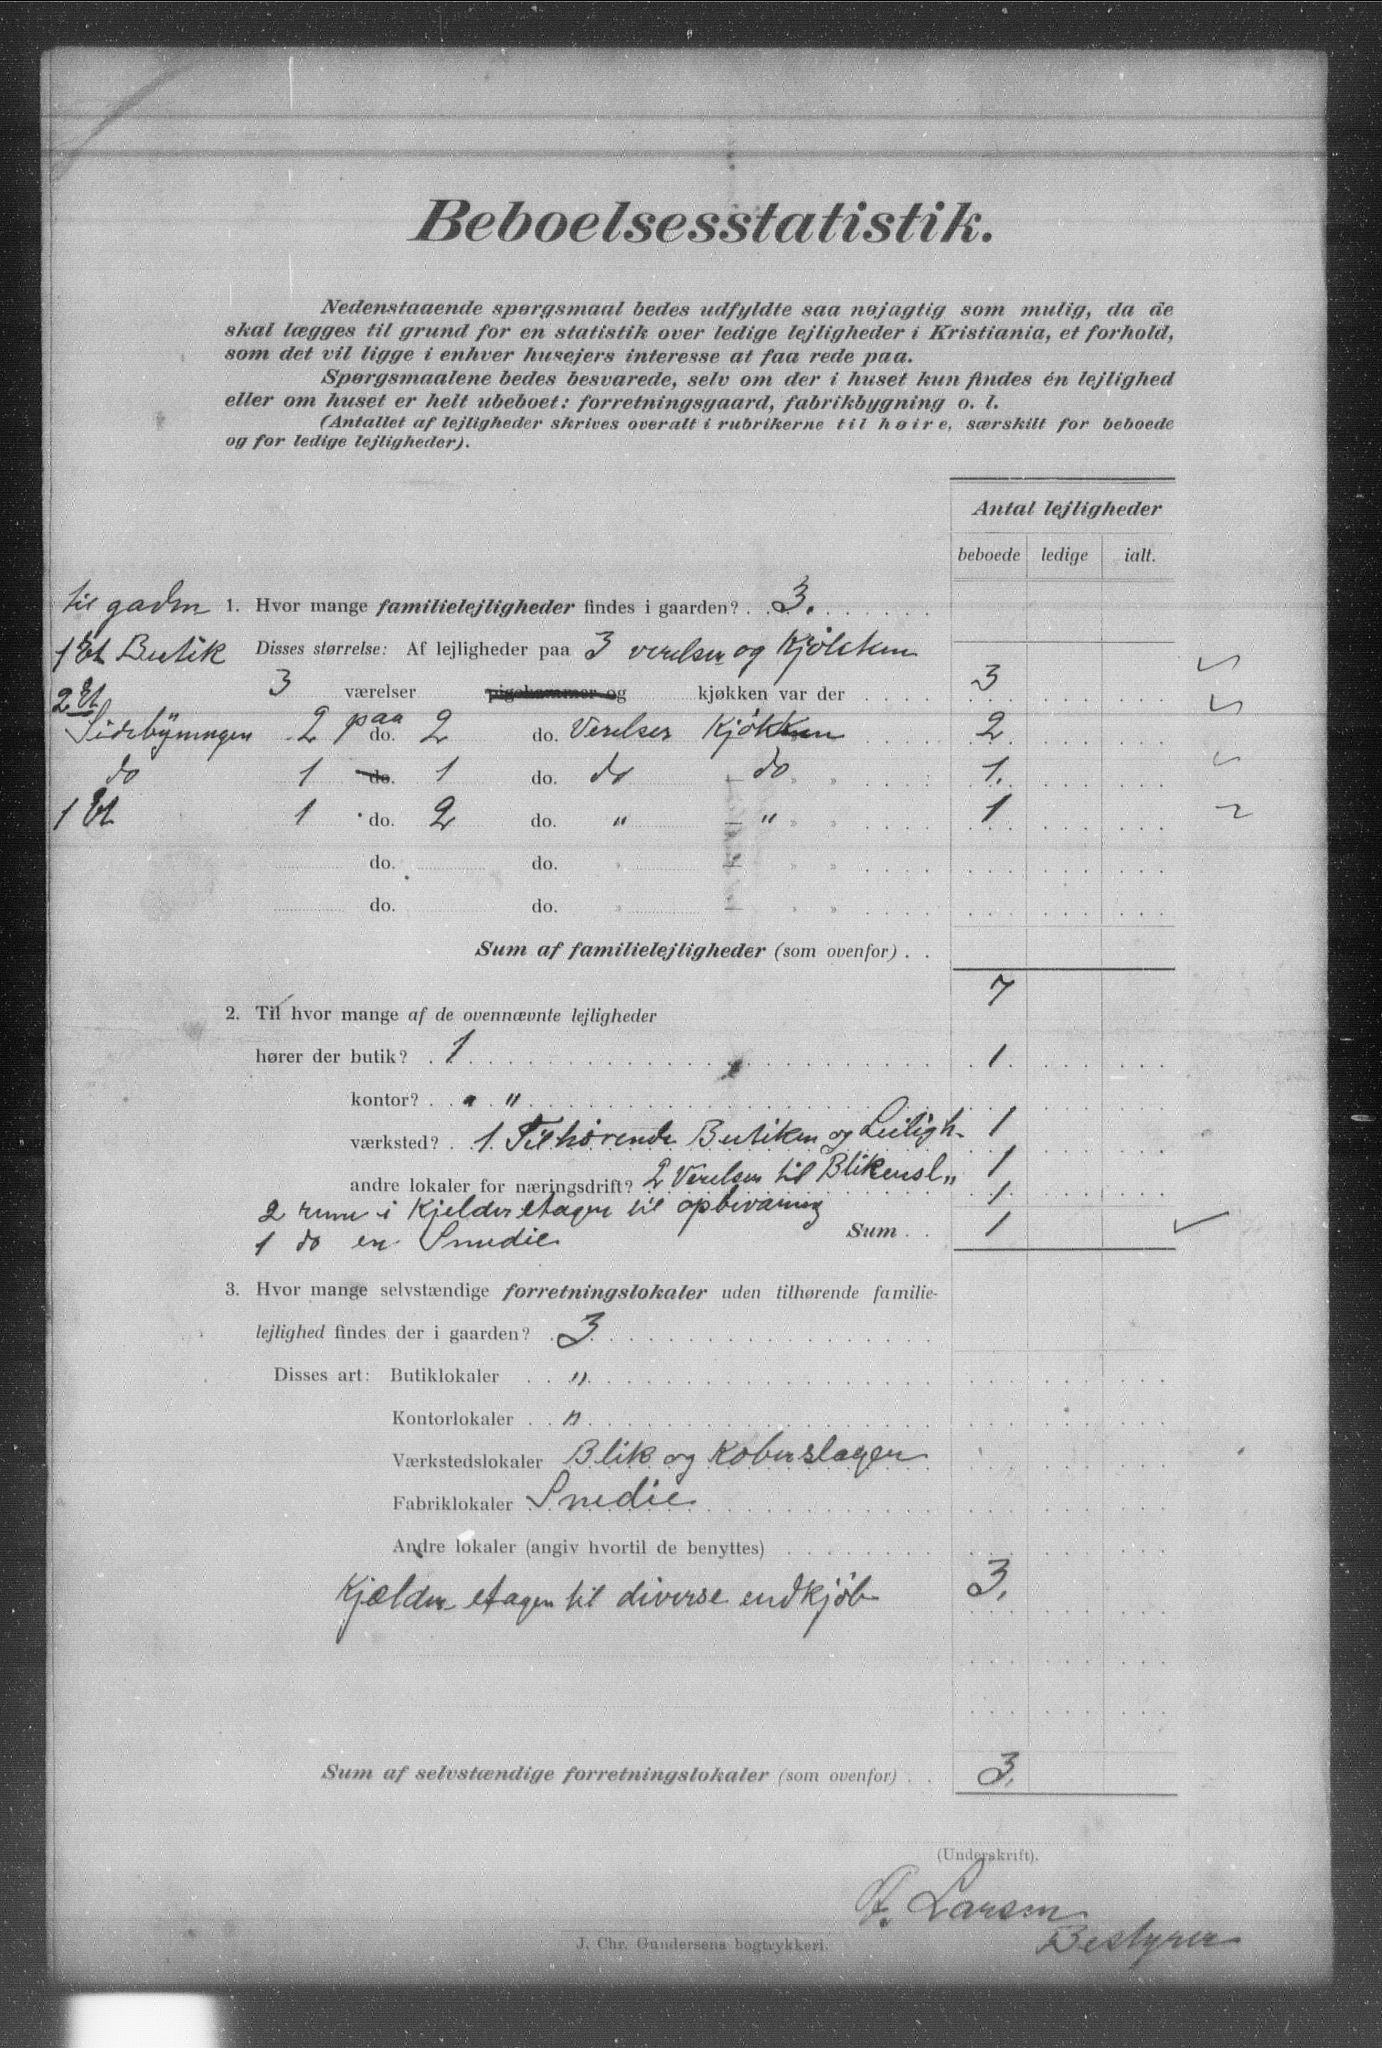 Beboelsesstatistik.
Nedenstaaende spørgsmaal bedes udfyldte saa nøjagtig som mulig, da de
skal lægges til grund for en statistik over ledige lejligheder i Kristiania, et forhold,
som det vil ligge i enhver husejers interesse at faa rede paa.
Spørgsmaalene bedes besvarede, selv om der i huset kun findes én lejlighed
eller om huset er helt ubeboet: forretningsgaard, fabrikbygning o. l.
(Antallet af lejligheder skrives overalt i rubrikerne til høire, særskilt for beboede
og for ledige lejligheder).
Antal lejligheder
beboede ledige ialt.
til gaden 1. Hvor mange familielejligheder findes i gaarden? 3.
1 Et Butik Disses størrelse: Af lejligheder paa 3 verelser og Kjøkken
2 Et 3 værelser pigekammer og kjøkken var der 3
Sidebyningen 2 paa do. 2 do. Verelser Kjøkken 2
do 1 do. 1 do. do – do " 1.
1 Et 1 do. 2 do. " – " " " 1
do. do. " – " "
do. do. " – " "
Sum af familielejligheder (som ovenfor)
7
2. Til hvor mange af de ovennævnte lejligheder
hører der butik? 1 1
kontor? " "
værksted? 1 Tilhørende Butiken og Leiligh. 1
andre lokaler for næringsdrift? 2 Verelser til Blikensl " 1
2 rum i Kjelder etagen til opbevaring 1
1 do en Smedie Sum 1
3. Hvor mange selvstændige forretningslokaler uden tilhørende familie-
lejlighed findes der i gaarden? 3
Disses art: Butiklokaler "
Kontorlokaler "
Værkstedslokaler Blik og Koberslager
Fabriklokaler Smedie
Andre lokaler (angiv hvortil de benyttes)
Kjælder etagen til diverse endkjøb 3.
Sum af selvstændige forretningslokaler (som ovenfor) 3.
(Underskrift).
Larsen
Bestyrer
J. Chr. Gundersens bogtrykkeri.